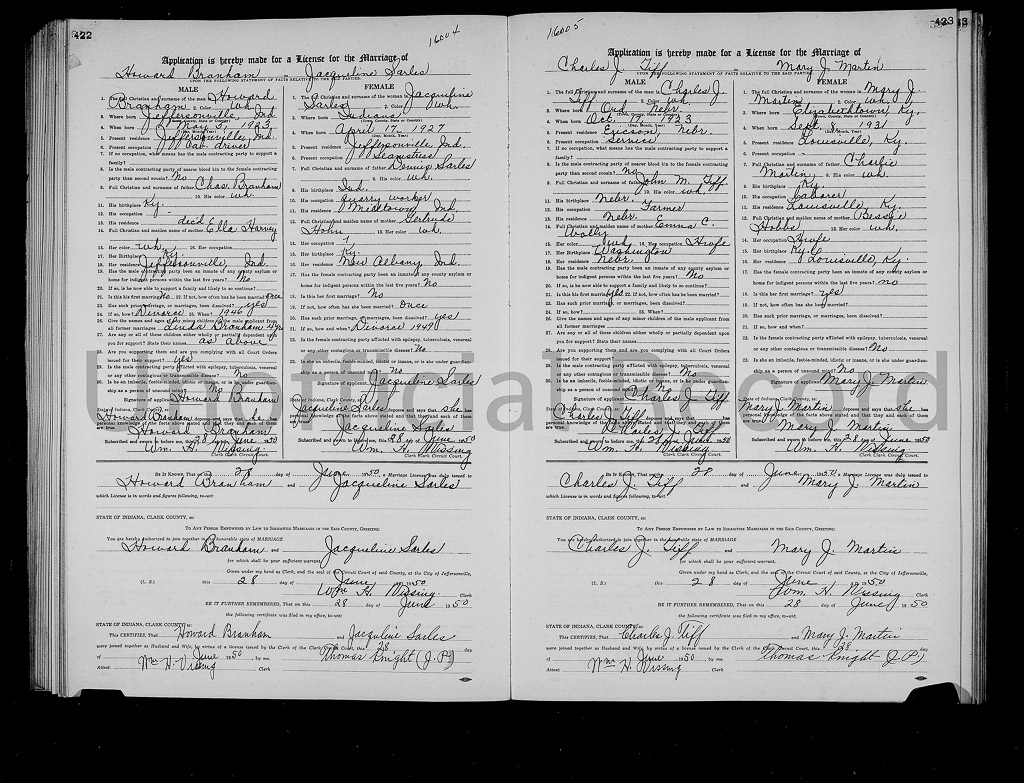 422
16004
Application is hereby made for a License for the Marriage of
Howard Branham Jacqueline Sarles
UPON THE FOLLOWING STATEMENT OF FACTS RELATIVE TO THE SAID PARTIES:
MALE
1. The full Christian and surname of the man is Howard
Branham 2. Color wh.
3. Where born Jeffersonville, Ind.
(Town, County, State or County)
4. When born May 8, 1925
(Day, Month, Year)
5. Present residence Jeffersonville, Ind.
6. Present occupation Cab driver
7. If no occupation, what means has the male contracting party to support a
family?
8. Is the male contracting party of nearer blood kin to the female contracting
party than second cousin? No
9. Full Christian and surname of father Chas. Branham
10. His color wh
11. His birthplace Ky.
12. His occupation -
13. His residence dec'd
14. Full Christian and maiden name of mother Ella Harvey
15. Her color wh. 16. Her occupation
17. Her Birthplace Ky.
18. Her residence Jeffersonville, Ind.
19. Has the male contracting party been an inmate of any county asylum or
home for indigent persons within the last five years? No
20. If so, is he now able to support a family and likely to so continue?
21. Is this his first marriage? No 22. If not, how often has he been married? once
23. Has such prior marriage, or marriages, been dissolved? yes
24. If so, how? Divorce 25. When? 1946
26. Give the names and ages of any minor children of the male applicant from
all former marriages Linda Branham 4 yrs
27. Are any or all of these children either wholly or partially dependent upon
you for support? State their names as above
28. Are you supporting them and are you complying with all Court Orders
issued for their support? yes
29. Is the male contracting party afflicted with epilepsy, tuberculosis, venereal
or any other contagious or transmissible disease? No
30. Is he an imbecile, feeble-minded, idiotic or insane, or is he under guardian-
ship as a person of unsound mind? No
Signature of applicant Howard Branham
State of Indiana, Clark County, ss:
Howard Branham deposes and says that he has
personal knowledge of the facts above stated and that they are true.
Howard Branham
Subscribed and sworn to before me, this 28 day of June 1950
Wm. H. Wissing
Clerk Clark Circuit Court.
FEMALE
1. The full Christian and surname of the woman is Jacqueline
Sarles 2. Color wh.
3. Where born Indiana
(Town, County, State or County)
4. When born April 17 1927
(Day, Month, Year)
5. Present residence Jeffersonville, Ind.
6. Present occupation Seamstress
7. Full Christian and surname of father Sarles
8. His color wh.
9. His birthplace Ind.
10. His occupation quarry worker
11. His residence Ind.
12. Full Christian and maiden name of mother Gertrude
13. Her color wh.
14. Her occupation
15. Her birthplace Ky.
16. Her residence New Albany, Ind.
17. Has the female contracting party been an inmate of any county asylum or
home for indigent persons within the last five years? No
18. Is this her first marriage? No
19. If not, how often has she been married? once
20. Has such prior marriage, or marriages, been dissolved? yes
21. If so, how and when? Divorce 1949
22. Is the female contracting party afflicted with epilepsy, tuberculosis, venereal
or any other contagious or transmissible disease? No
23. Is she an imbecile, feeble-minded, idiotic, or insane, or is she under guardian-
ship as a person of unsound mind? No
Signature of applicant Jacqueline Sarles
State of Indiana, Clark County, ss:
Jacqueline Sarles deposes and says that she has
personal knowledge of the facts above stated and that they are true.
Jacqueline Sarles
Subscribed and sworn to before me, this 28 day of June 1950
Wm. H. Wissing
Clerk Clark Circuit Court.
BE IT KNOWN, That on the 28 day of June 1950, a Marriage License was duly issued to
Howard Branham and Jacqueline Sarles
which License is in words and figures following, to-wit:
STATE OF INDIANA, CLARK COUNTY, ss:
TO ANY PERSON EMPOWERED BY LAW TO SOLEMNIZE MARRIAGES IN THE SAID COUNTY, GREETING:
You are hereby authorized to join together in the honorable state of MARRIAGE
Howard Branham and Jacqueline Sarles
for which shall be your sufficient warrant.
Given under my hand as Clerk, and the seal of the Circuit Court of said County, at the City of Jeffersonville,
(L. S.) this 28 day of June 1950
Wm H. Wissing Clerk
BE IT FURTHER REMEMBERED, That on this 28 day of June 1950
the following certificate was filed in my office, to-wit:
STATE OF INDIANA, CLARK COUNTY, ss:
THIS CERTIFIES, That Howard Branham and Jacquline Sarles
were joined together as Husband and Wife, by virtue of a license issued by the Clerk of the Clark Circuit Court, this 28 day
of June 1950, by me, Thomas Knight (J.P.)
Attest: Wm H. Wissing Clerk
423
16005
Application is hereby made for a License for the Marriage of
Charles J. Tiff Mary J. Martin
UPON THE FOLLOWING STATEMENT OF FACTS RELATIVE TO THE SAID PARTIES:
MALE
1. The full Christian and surname of the man is Charles J.
Tiff 2. Color wh.
3. Where born Ord Nebr.
4. When born Oct. 19, 1923
(Day, Month, Year)
5. Present residence Ericson, Nebr.
6. Present occupation Service
7. If no occupation, what means has the male contracting party to support a
family?
8. Is the male contracting party of nearer blood kin to the female contracting
party than second cousin? No
9. Full Christian and surname of father John M. Tiff
10. His color wh.
11. His birthplace Nebr.
12. His occupation Farmer
13. His residence Nebr.
14. Full Christian and maiden name of mother Emma C.
15. Her color wh. 16. Her occupation Hwfe
17. Her Birthplace Washington
18. Her residence Nebr.
19. Has the male contracting party been an inmate of any county asylum or
home for indigent persons within the last five years? No
20. If so, is he now able to support a family and likely to so continue?
21. Is this his first marriage? yes 22. If not, how often has he been married?
23. Has such prior marriage, or marriages, been dissolved?
24. If so, how? 25. When?
26. Give the names and ages of any minor children of the male applicant from
all former marriages
27. Are any or all of these children either wholly or partially dependent upon
you for support? State their names
28. Are you supporting them and are you complying with all Court Orders
issued for their support?
29. Is the male contracting party afflicted with epilepsy, tuberculosis, venereal
or any other contagious or transmissible disease? No
30. Is he an imbecile, feeble-minded, idiotic or insane, or is he under guardian-
ship as a person of unsound mind? No
Signature of applicant Charles J. Tiff
State of Indiana, Clark County, ss:
Charles J. Tiff deposes and says that he has
personal knowledge of the facts above stated and that they are true.
Charles J. Tiff
Subscribed and sworn to before me, this 28 day of June 1950
Wm. H. Wissing
Clerk Clark Circuit Court.
FEMALE
1. The full Christian and surname of the woman is Mary J.
Martin 2. Color wh.
3. Where born Elizabethtown, Ky.
(Town, County, State or County)
4. When born Sept. 8, 1931
(Day, Month, Year)
5. Present residence Louisville, Ky.
6. Present occupation -
7. Full Christian and surname of father Charlie
Martin 8. His color wh.
9. His birthplace Ky.
10. His occupation Laborer
11. His residence Louisville, Ky.
12. Full Christian and maiden name of mother Bessie
Hobbs 13. Her color wh.
14. Her occupation Hwfe
15. Her birthplace Ky.
16. Her residence Louisville, Ky.
17. Has the female contracting party been an inmate of any county asylum or
home for indigent persons within the last five years? no
18. Is this her first marriage? yes
19. If not, how often has she been married?
20. Has such prior marriage, or marriages, been dissolved?
21. If so, how and when?
22. Is the female contracting party afflicted with epilepsy, tuberculosis, venereal
or any other contagious or transmissible disease? No
23. Is she an imbecile, feeble-minded, idiotic, or insane, or is she under guardian-
ship as a person of unsound mind? No
Signature of applicant Mary J. Martin
State of Indiana, Clark County, ss:
Mary J. Martin deposes and says that she has
personal knowledge of the facts above stated and that they are true.
Mary J. Martin
Subscribed and sworn to before me, this 28 day of June 1950
Wm. H. Wissing
Clerk Clark Circuit Court.
BE IT KNOWN, That on the 28 day of June 1950, a Marriage License was duly issued to
Charles J. Tiff and Mary J. Martin
which License is in words and figures following, to-wit:
STATE OF INDIANA, CLARK COUNTY, ss:
TO ANY PERSON EMPOWERED BY LAW TO SOLEMNIZE MARRIAGES IN THE SAID COUNTY, GREETING:
You are hereby authorized to join together in the honorable state of MARRIAGE
Charles J. Tiff and Mary J. Martin
for which shall be your sufficient warrant.
Given under my hand as Clerk, and the seal of the Circuit Court of said County, at the City of Jeffersonville,
(L. S.) this 28 day of June 1950
Wm. H. Wissing Clerk
BE IT FURTHER REMEMBERED, That on this 28 day of June 1950
the following certificate was filed in my office, to-wit:
STATE OF INDIANA, CLARK COUNTY, ss:
THIS CERTIFIES, That Charles J. Tiff and Mary J. Martin
were joined together as Husband and Wife, by virtue of a license issued by the Clerk of the Clark Circuit Court, this 28 day
of June 1950, by me, Thomas Knight J.P.)
Attest: Wm H. Wissing Clerk
Unofficial Record